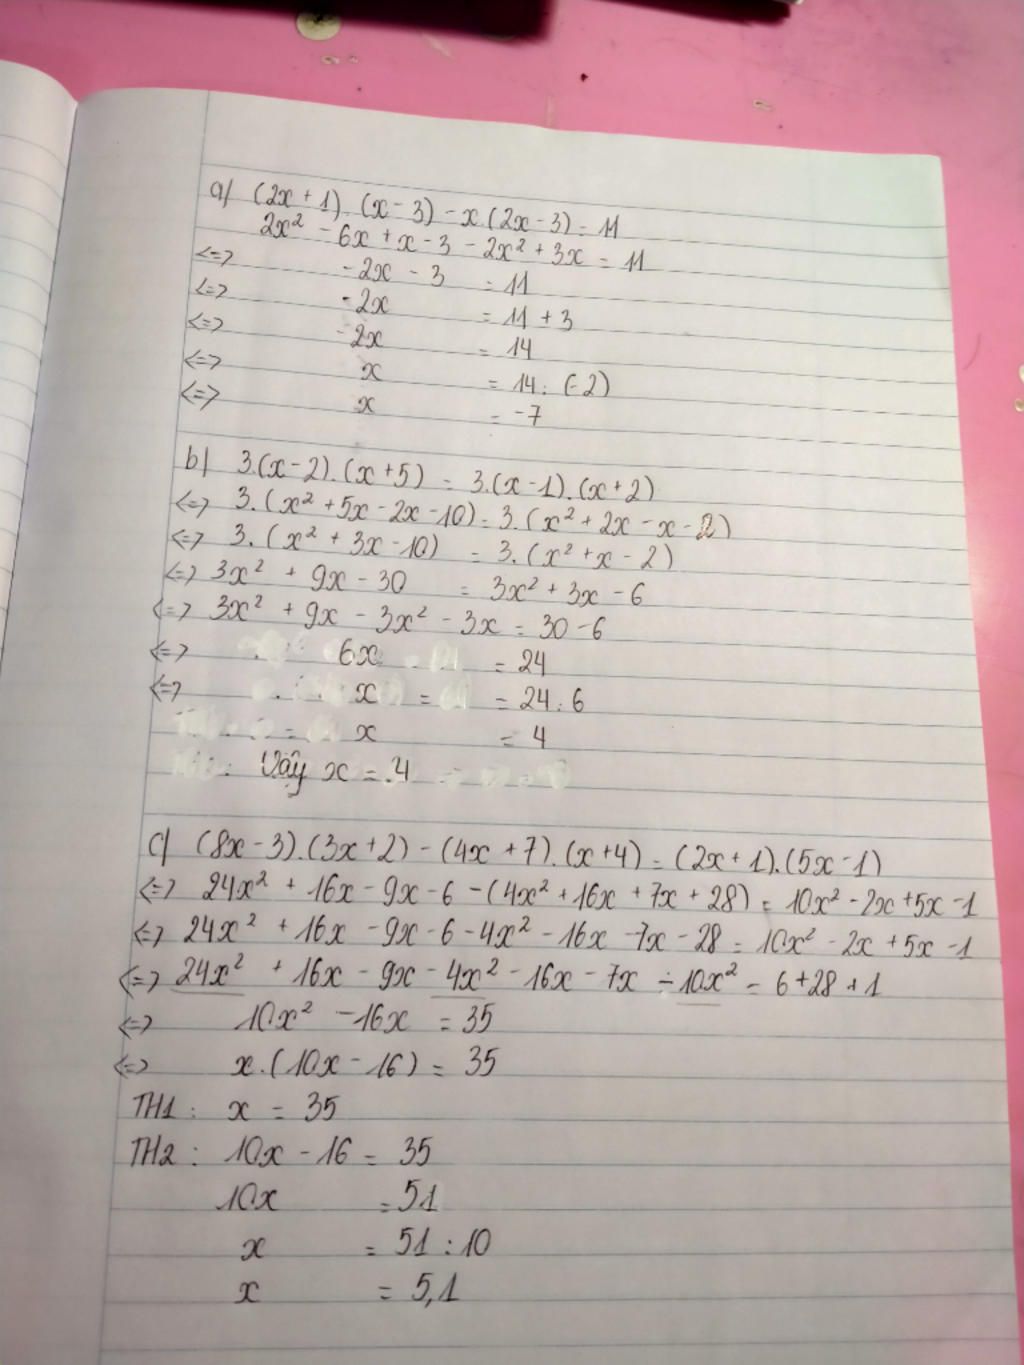 a/ (2x + 1).(x - 3) - x.(2x - 3) = 11
2x² - 6x + x - 3 - 2x² + 3x = 11
<=> -2x - 3 = 11
<=> -2x = 11 + 3
<=> -2x = 14
<=> x = 14 : (-2)
<=> x = -7
b/ 3.(x - 2).(x + 5) = 3.(x - 1).(x + 2)
<=> 3.(x² + 5x - 2x - 10) = 3.(x² + 2x - x - 2)
<=> 3.(x² + 3x - 10) = 3.(x² + x - 2)
<=> 3x² + 9x - 30 = 3x² + 3x - 6
<=> 3x² + 9x - 3x² - 3x = 30 - 6
<=> 6x = 24
<=> x = 24 : 6
x = 4
Vậy x = 4
c/ (8x - 3).(3x + 2) - (4x + 7).(x + 4) = (2x + 1).(5x - 1)
<=> 24x² + 16x - 9x - 6 - (4x² + 16x + 7x + 28) = 10x² - 2x + 5x - 1
<=> 24x² + 16x - 9x - 6 - 4x² - 16x - 7x - 28 = 10x² - 2x + 5x - 1
<=> 24x² + 16x - 9x - 4x² - 16x - 7x - 10x² = 6 + 28 + 1
<=> 10x² - 16x = 35
<=> x.(10x - 16) = 35
TH1 : x = 35
TH2 : 10x - 16 = 35
10x = 51
x = 51 : 10
x = 5,1